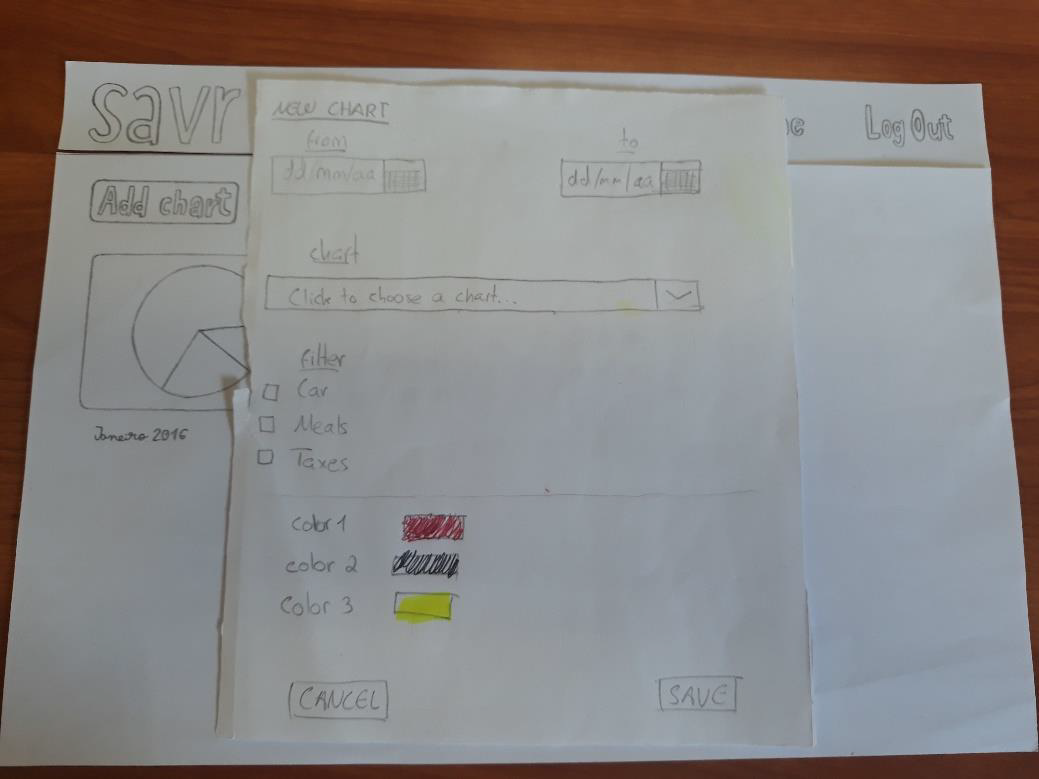 savr
Log Out
Add chart
Janeiro 2016
NEW CHART
from
to
dd/mm/aa
dd/mm/aa
chart
Click to choose a chart...
filter
Car
Meals
Taxes
Color 1
color 2
Color 3
CANCEL
SAVE